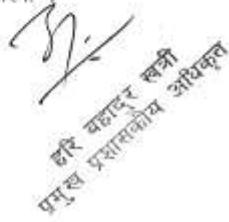 हरि बहादुर खत्री
प्रमुख प्रशासकीय अधिकृत